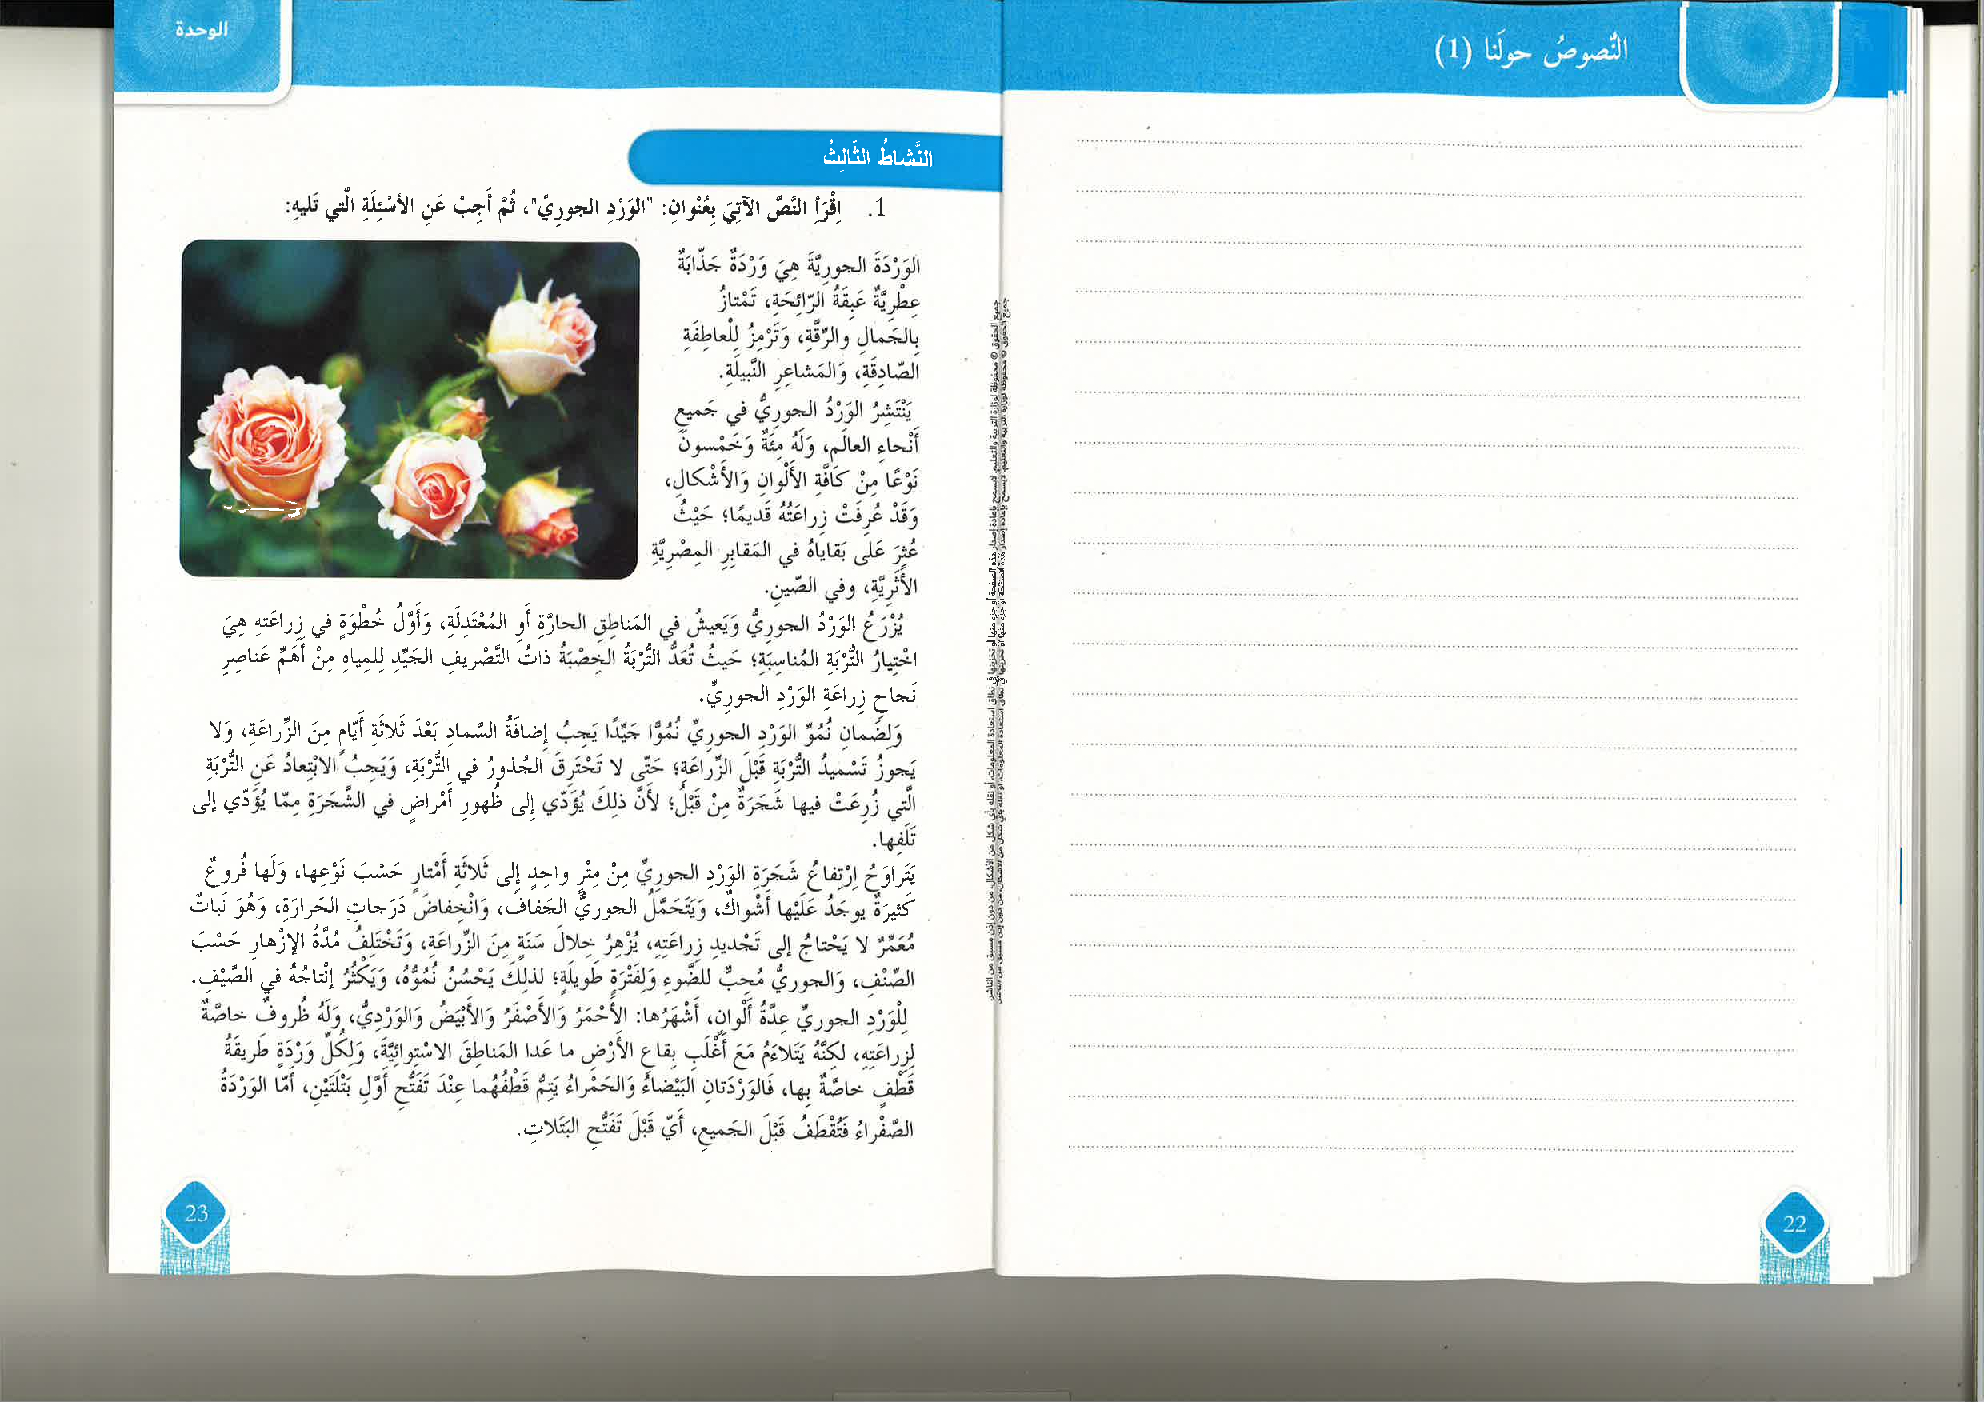 النُّصوصُ حولَنا (1)
22
الوحدة
النَّشاطُ الثّالِثُ
1. اِقْرَأِ النَّصَّ الآتِيَ بِعُنْوانِ: "الوَرْدِ الجورِيِّ"، ثُمَّ أَجِبْ عَنِ الأَسْئِلَةِ الَّتي تَليهِ:
الوَرْدَةَ الجورِيَّةَ هِيَ وَرْدَةٌ جَذّابَةٌ
عِطْرِيَّةٌ عَبِقَةُ الرّائِحَةِ، تَمْتازُ
بِالجَمالِ والرِّقَّةِ، وَتَرْمِزُ لِلْعاطِفَةِ
الصّادِقَةِ، وَالمَشاعِرِ النَّبيلَةِ.
يَنْتَشِرُ الوَرْدُ الجورِيُّ في جَميعِ
أَنْحاءِ العالَمِ، وَلَهُ مِئَةٌ وَخَمْسونَ
نَوْعًا مِنْ كافَّةِ الأَلْوانِ وَالأَشْكالِ،
وَقَدْ عُرِفَتْ زِراعَتُهُ قَديمًا؛ حَيْثُ
عُثِرَ عَلى بَقاياهُ في المَقابِرِ المِصْرِيَّةِ
الأَثَرِيَّةِ، وفي الصّينِ.
يُزْرَعُ الوَرْدُ الجورِيُّ وَيَعيشُ في المَناطِقِ الحارَّةِ أَوِ المُعْتَدِلَةِ، وَأَوَّلُ خُطْوَةٍ في زِراعَتهِ هِيَ
اخْتِيارُ التُّرْبَةِ المُناسِبَةِ؛ حَيثُ تُعَدُّ التُّرْبَةُ الخِصْبَةُ ذاتُ التَّصْريفِ الجَيِّدِ لِلمِياهِ مِنْ أَهَمِّ عَناصِرِ
نَجاحِ زِراعَةِ الوَرْدِ الجورِيِّ.
وَلِضَمانِ نُمُوِّ الوَرْدِ الجورِيِّ نُمُوًّا جَيِّدًا يَجِبُ إِضافَةُ السَّمادِ بَعْدَ ثَلاثَةِ أَيّامٍ مِنَ الزِّراعَةِ، وَلا
يَجوزُ تَسْميدُ التُّرْبَةِ قَبْلَ الزِّراعَةِ؛ حَتّى لا تَحْتَرِقَ الجُذورُ في التُّرْبَةِ، وَيَجِبُ الابْتِعادُ عَنِ التُّرْبَةِ
الَّتي زُرِعَتْ فيها شَجَرَةٌ مِنْ قَبْلُ؛ لأَنَّ ذلِكَ يُؤَدّي إِلى ظُهورِ أَمْراضٍ في الشَّجَرَةِ مِمّا يُؤَدّي إِلى
تَلَفِها.
يَتَراوَحُ اِرْتِفاعُ شَجَرَةِ الوَرْدِ الجورِيِّ مِنْ مِتْرٍ واحِدٍ إِلى ثَلاثَةِ أَمْتارٍ حَسْبَ نَوْعِها، وَلَها فُروعٌ
كَثيرَةٌ يوجَدُ عَلَيْها أَشْواكٌ، وَيَتَحَمَّلُ الجورِيُّ الجَفافَ، وَانْخِفاضَ دَرَجاتِ الحَرارَةِ، وَهُوَ نَباتٌ
مُعَمِّرٌ لا يَحْتاجُ إِلى تَجْديدِ زِراعَتِهِ، يُزْهِرُ خِلالَ سَنَةٍ مِنَ الزِّراعَةِ، وَتَخْتَلِفُ مُدَّةُ الإِزْهارِ حَسْبَ
الصِّنْفِ، وَالجورِيُّ مُحِبٌّ للضَّوءِ وَلِفَتْرَةٍ طَويلَةٍ؛ لذلِكَ يَحْسُنُ نُمُوُّهُ، وَيَكْثُرُ إِنْتاجُهُ في الصَّيْفِ.
لِلْوَرْدِ الجورِيِّ عِدَّةُ أَلْوانٍ، أَشْهَرُها: الأَحْمَرُ وَالأَصْفَرُ وَالأَبْيَضُ وَالوَرْدِيُّ، وَلَهُ ظُروفٌ خاصَّةٌ
لِزِراعَتِهِ، لكِنَّهُ يَتَلاءَمُ مَعَ أَغْلَبِ بِقاعِ الأَرْضِ ما عَدا المَناطِقَ الاسْتِوائِيَّةَ، وَلِكُلِّ وَرْدَةٍ طَريقَةُ
قَطْفٍ خاصَّةٌ بِها، فَالوَرْدَتانِ البَيْضاءُ وَالحَمْراءُ يَتِمُّ قَطْفُهُما عِنْدَ تَفَتُّحِ أَوَّلِ بَتْلَتَيْنِ، أَمّا الوَرْدَةُ
الصَّفْراءُ فَتُقْطَفُ قَبْلَ الجَميعِ، أَيّ قَبْلَ تَفَتُّحِ البَتَلاتِ.
23